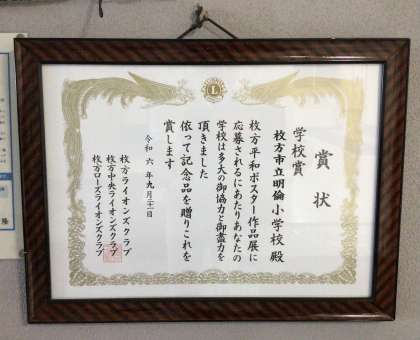 賞状
学校賞
枚方市立明倫小学校 殿
枚方平和ポスター作品展に
応募されるにあたりあなたの
学校は多大の御協力と御盡力を
頂きました
依って記念品を贈りこれを
賞します
令和六年九月二十一日
枚方ライオンズクラブ
枚方中央ライオンズクラブ
枚方ローズライオンズクラブ
L